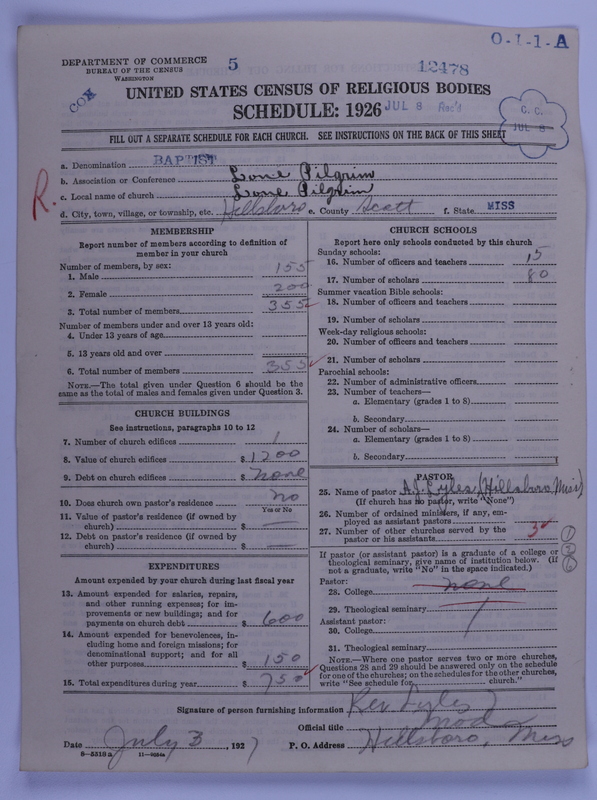 O-1-1-A
DEPARTMENT OF COMMERCE
BUREAU OF THE CENSUS
WASHINGTON
5
12478
COM
UNITED STATES CENSUS OF RELIGIOUS BODIES
SCHEDULE: 1926
JUL 8 Rec'd
C. C.
JUL 8
FILL OUT A SEPARATE SCHEDULE FOR EACH CHURCH. SEE INSTRUCTIONS ON THE BACK OF THIS SHEET
R.
a. Denomination BAPTIST
b. Association or Conference Lone Pilgrim
c. Local name of church Lone Pilgrim
d. City, town, village, or township, etc. Hillsboro e. County Scott f. State MISS
MEMBERSHIP
Report number of members according to definition of
member in your church
Number of members, by sex:
1. Male 155
2. Female 200
3. Total number of members 355
Number of members under and over 13 years old:
4. Under 13 years of age
5. 13 years old and over
6. Total number of members 355
NOTE.—The total given under Question 6 should be the
same as the total of males and females given under Question 3.
CHURCH BUILDINGS
See instructions, paragraphs 10 to 12
7. Number of church edifices 1
8. Value of church edifices $ 1200
9. Debt on church edifices $ none
10. Does church own pastor's residence no
Yes or No
11. Value of pastor's residence (if owned by
church) $
12. Debt on pastor's residence (if owned by
church) $
EXPENDITURES
Amount expended by your church during last fiscal year
13. Amount expended for salaries, repairs,
and other running expenses; for im-
provements or new buildings; and for
payments on church debt $ 600
14. Amount expended for benevolences, in-
cluding home and foreign missions; for
denominational support; and for all
other purposes $ 150
15. Total expenditures during year $ 750
CHURCH SCHOOLS
Report here only schools conducted by this church
Sunday schools:
16. Number of officers and teachers 15
17. Number of scholars 80
Summer vacation Bible schools:
18. Number of officers and teachers
19. Number of scholars
Week-day religious schools:
20. Number of officers and teachers
21. Number of scholars
Parochial schools:
22. Number of administrative officers
23. Number of teachers—
a. Elementary (grades 1 to 8)
b. Secondary
24. Number of scholars—
a. Elementary (grades 1 to 8)
b. Secondary
PASTOR
25. Name of pastor A.J. Lyles (Hillsboro Miss)
(If church has no pastor, write "None")
26. Number of ordained ministers, if any, em-
ployed as assistant pastors
27. Number of other churches served by the
pastor or his assistants 3
If pastor (or assistant pastor) is a graduate of a college or
theological seminary, give name of institution below. (If
not a graduate, write "No" in the space indicated.)
Pastor:
28. College none
29. Theological seminary
Assistant pastor:
30. College
31. Theological seminary
NOTE.—Where one pastor serves two or more churches,
Questions 28 and 29 should be answered only on the schedule
for one of the churches; on the schedules for the other churches,
write "See schedule for church."
Signature of person furnishing information Rev Lyles
Official title Mod
Date July 3, 1927 P. O. Address Hillsboro, Miss
8—5319a 11—9084a